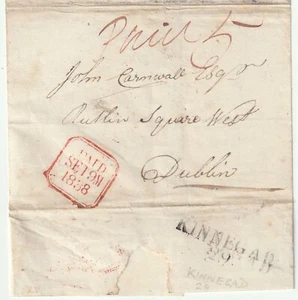 Paid 5
John Cornwall Esqr
Rutlin Square West
Dublin
PAID
SE 19 M
1838
KINNEGAD
29
KINNEGAD